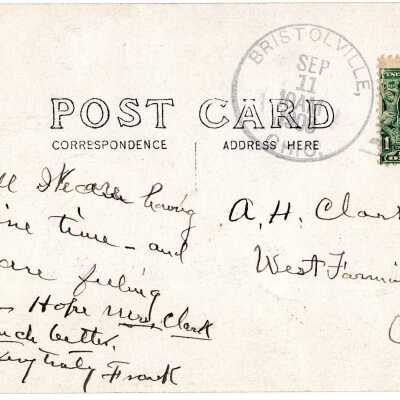 BRISTOLVILLE,
SEP
11
OHIO.
POST CARD
CORRESPONDENCE
ADDRESS HERE
1
We are having
ine time - and
are feeling
Hope Mrs. Clark
uch better.
Frank
A. H. Clark
West Farmin